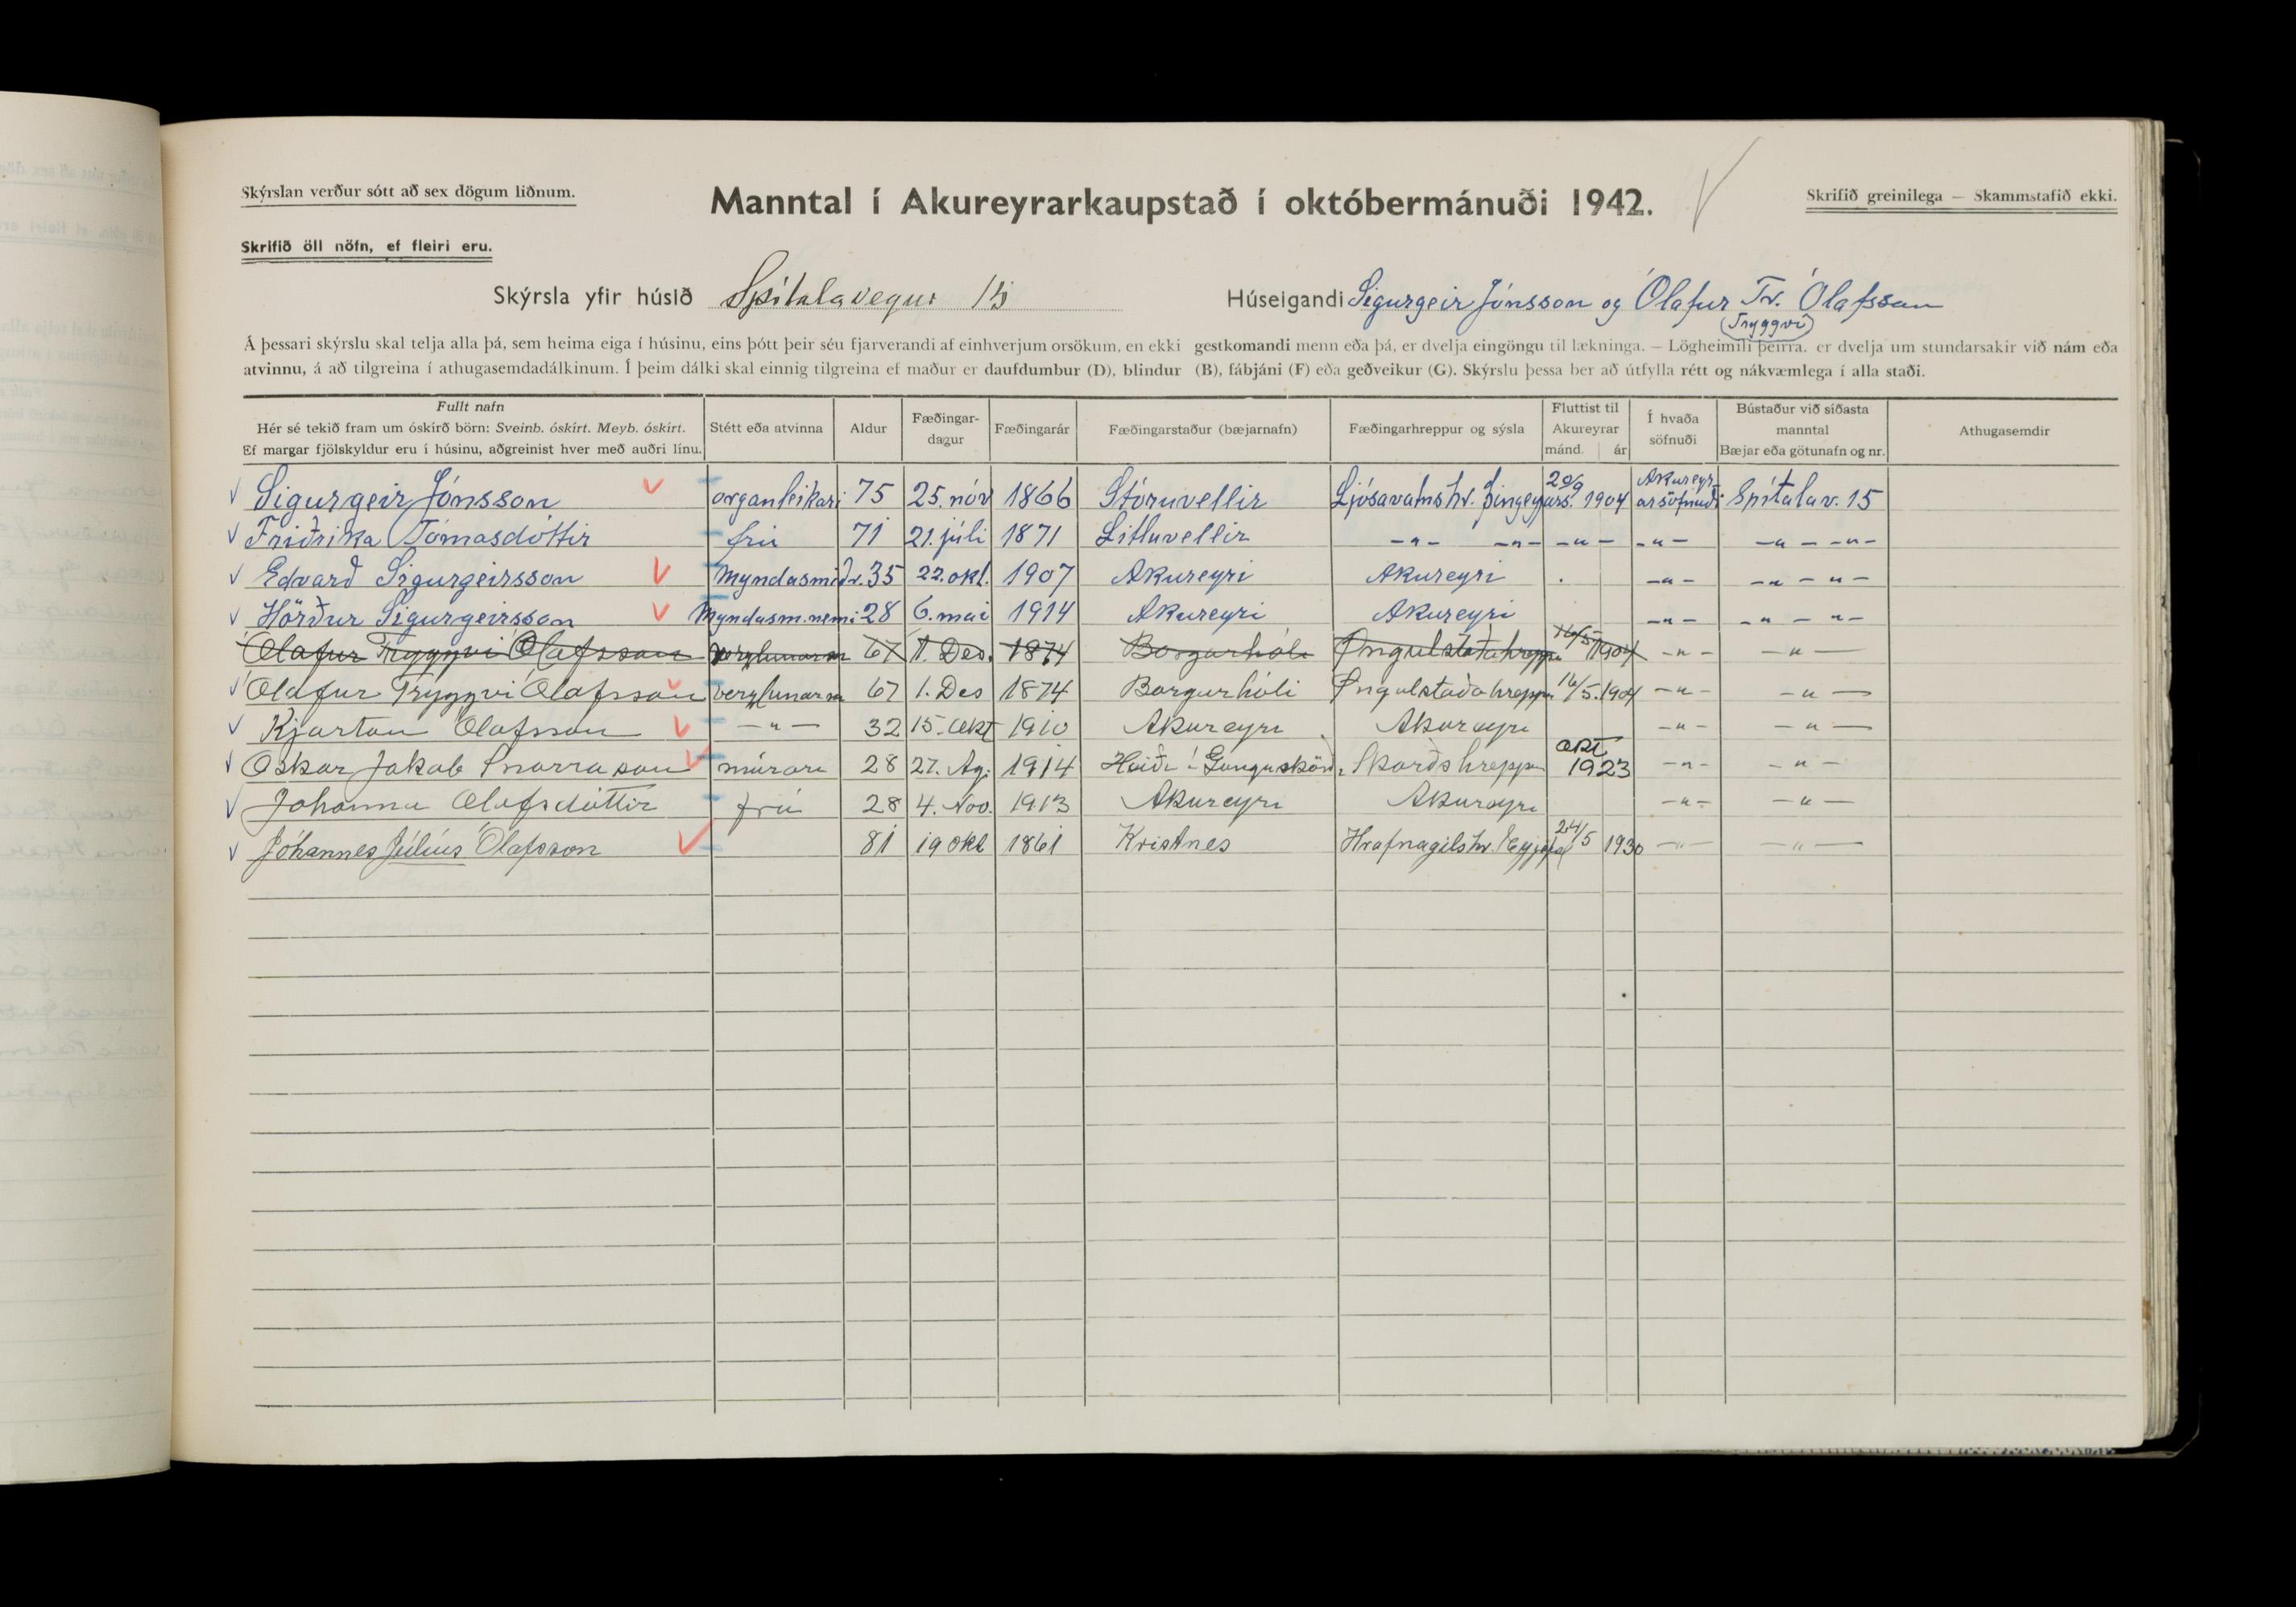 Skýrslan verður sótt að sex dögum liðnum.
Manntal í Akureyrarkaupstað í októbermánuði 1942.
Skrifið greinilega — Skammstafið ekki.
Skrifið öll nöfn, ef fleiri eru.
Skýrsla yfir húsið Spítalavegur 15
Húseigandi Sigurgeir Jónsson og Ólafur Tr. Ólafsson
(Tryggvi)
Á þessari skýrslu skal telja alla þá, sem heima eiga í húsinu, eins þótt þeir séu fjarverandi af einhverjum orsökum, en ekki gestkomandi menn eða þá, er dvelja eingöngu til lækninga. — Lögheimili þeirra. er dvelja um stundarsakir við nám eða
atvinnu, á að tilgreina í athugasemdadálkinum. Í þeim dálki skal einnig tilgreina ef maður er daufdumbur (D), blindur (B), fábjáni (F) eða geðveikur (G). Skýrslu þessa ber að útfylla rétt og nákvæmlega í alla staði.
Fullt nafn
Hér sé tekið fram um óskírð börn: Sveinb. óskírt. Meyb. óskírt.
Ef margar fjölskyldur eru í húsinu, aðgreinist hver með auðri línu.
Stétt eða atvinna
Aldur
Fæðingar-
dagur
Fæðingarár
Fæðingarstaður (bæjarnafn)
Fæðingarhreppur og sýsla
Fluttist til
Akureyrar
mánd. ár
Í hvaða
söfnuði
Bústaður við síðasta
manntal
Bæjar eða götunafn og nr.
Athugasemdir
Sigurgeir Jónsson organleikari 75 25. nóv 1866 Stóruvellir Ljósavatnshr. Þingeyjars. 20/9 1904 Akureyrarsöfnuði Spítalav. 15
Friðrika Tómasdóttir frú 71 21. júlí 1871 Litluvellir -"- -"- -"- -"- -"- -"-
Edvarð Sigurgeirsson myndasmiður 35 22. okt. 1907 Akureyri Akureyri -"- -"- "-
Hörður Sigurgeirsson Myndasm.nemi 28 6. maí 1914 Akureyri Akureyri -"- -"- "-
Ólafur Tryggvi Ólafsson verzlunarm 67 1. Des. 1874 Borgarhóli Öngulstaðahreppi 16/5 1904 -"- -"-
Ólafur Tryggvi Ólafsson verzlunarm 67 1. Des 1874 Borgarhóli Öngulstaðahreppi 16/5. 1904 -"- -"-
Kjartan Ólafsson -"- 32 15. Okt 1910 Akureyri Akureyri -"- -"-
Oskar Jakob Snorrason múrari 28 27. Ag. 1914 Heiði í Gönguskörð. Skarðshreppi okt. 1923 -"- -"-
Johanna Olafsdóttir frú 28 4. Nov. 1913 Akureyri Akureyri -"- -"-
Jóhannes Júlíus Ólafsson 81 19 okt 1861 Kristnes Hrafnagilshr. Eyjafj 24/5 1930 -"- -"-